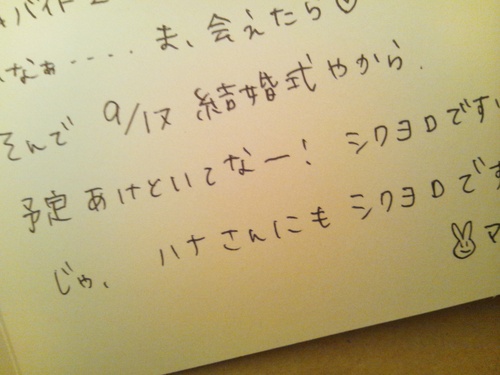 バイト
なぁ・・・・ ま、会えたら♡
そんで 9/17 結婚式やから.
予定あけといてなー! シクヨロです
じゃ、ハナさんにも シクヨロです
マ